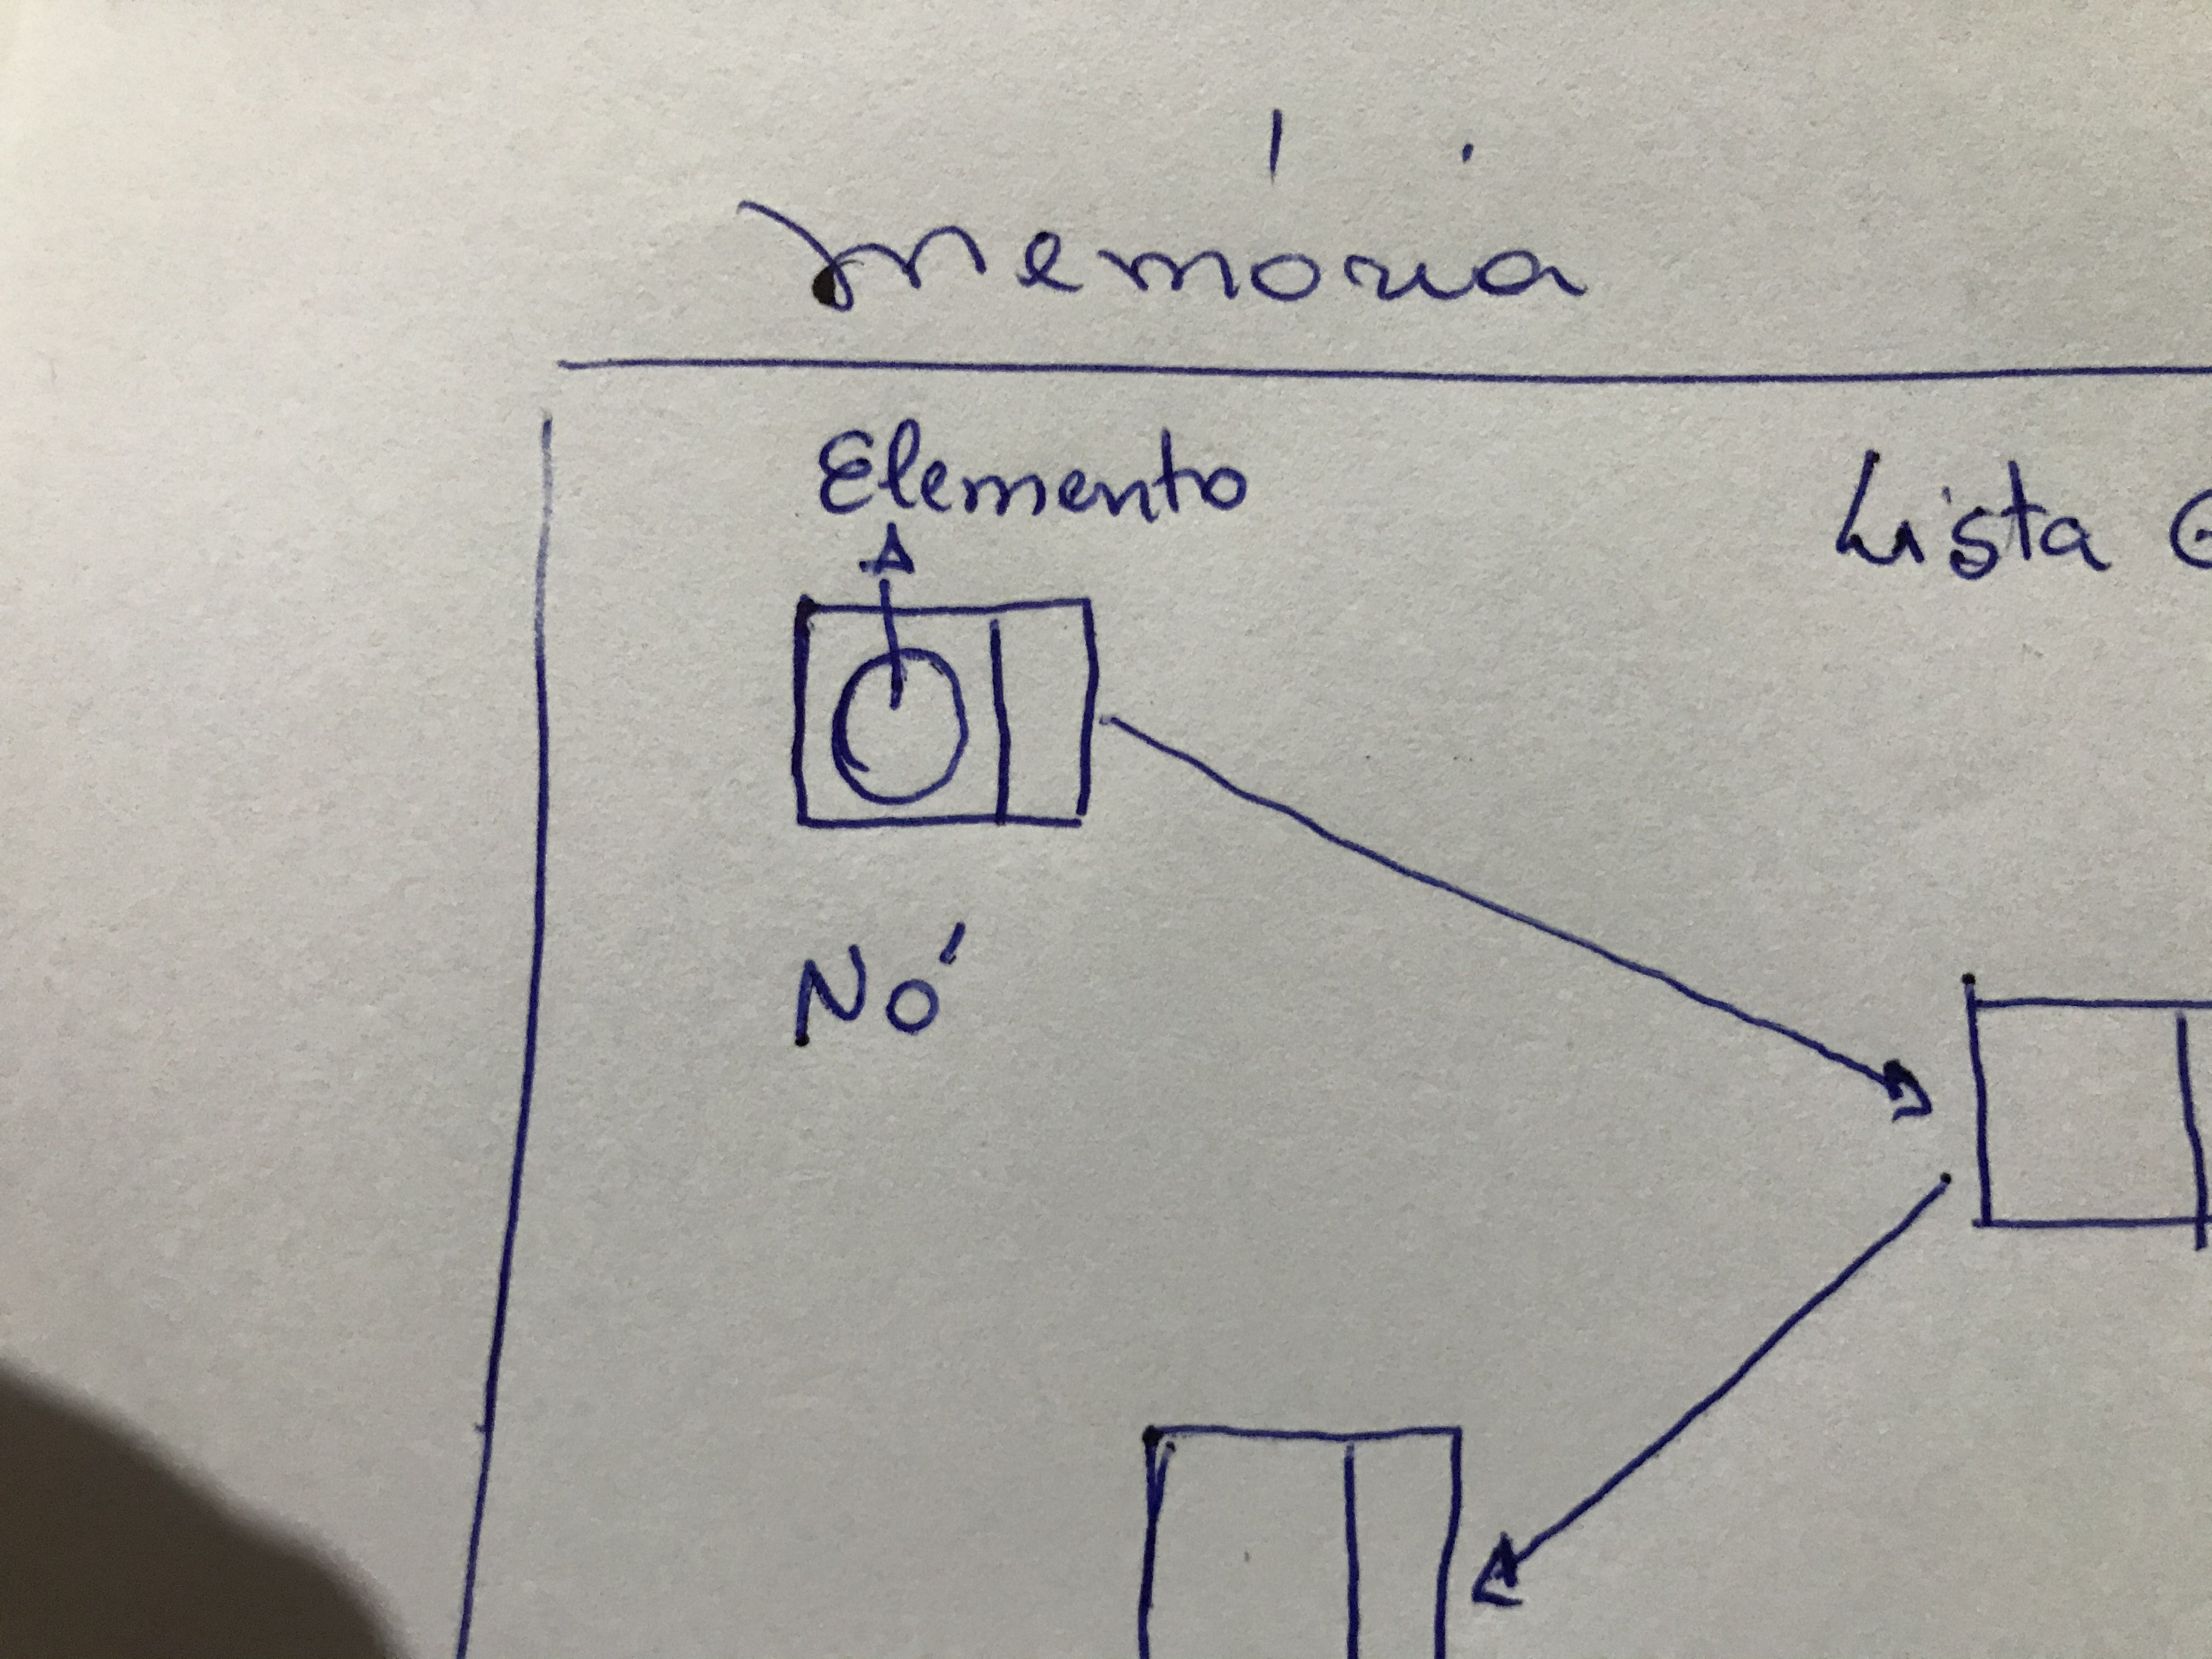 Memória
Elemento
Lista
Nó